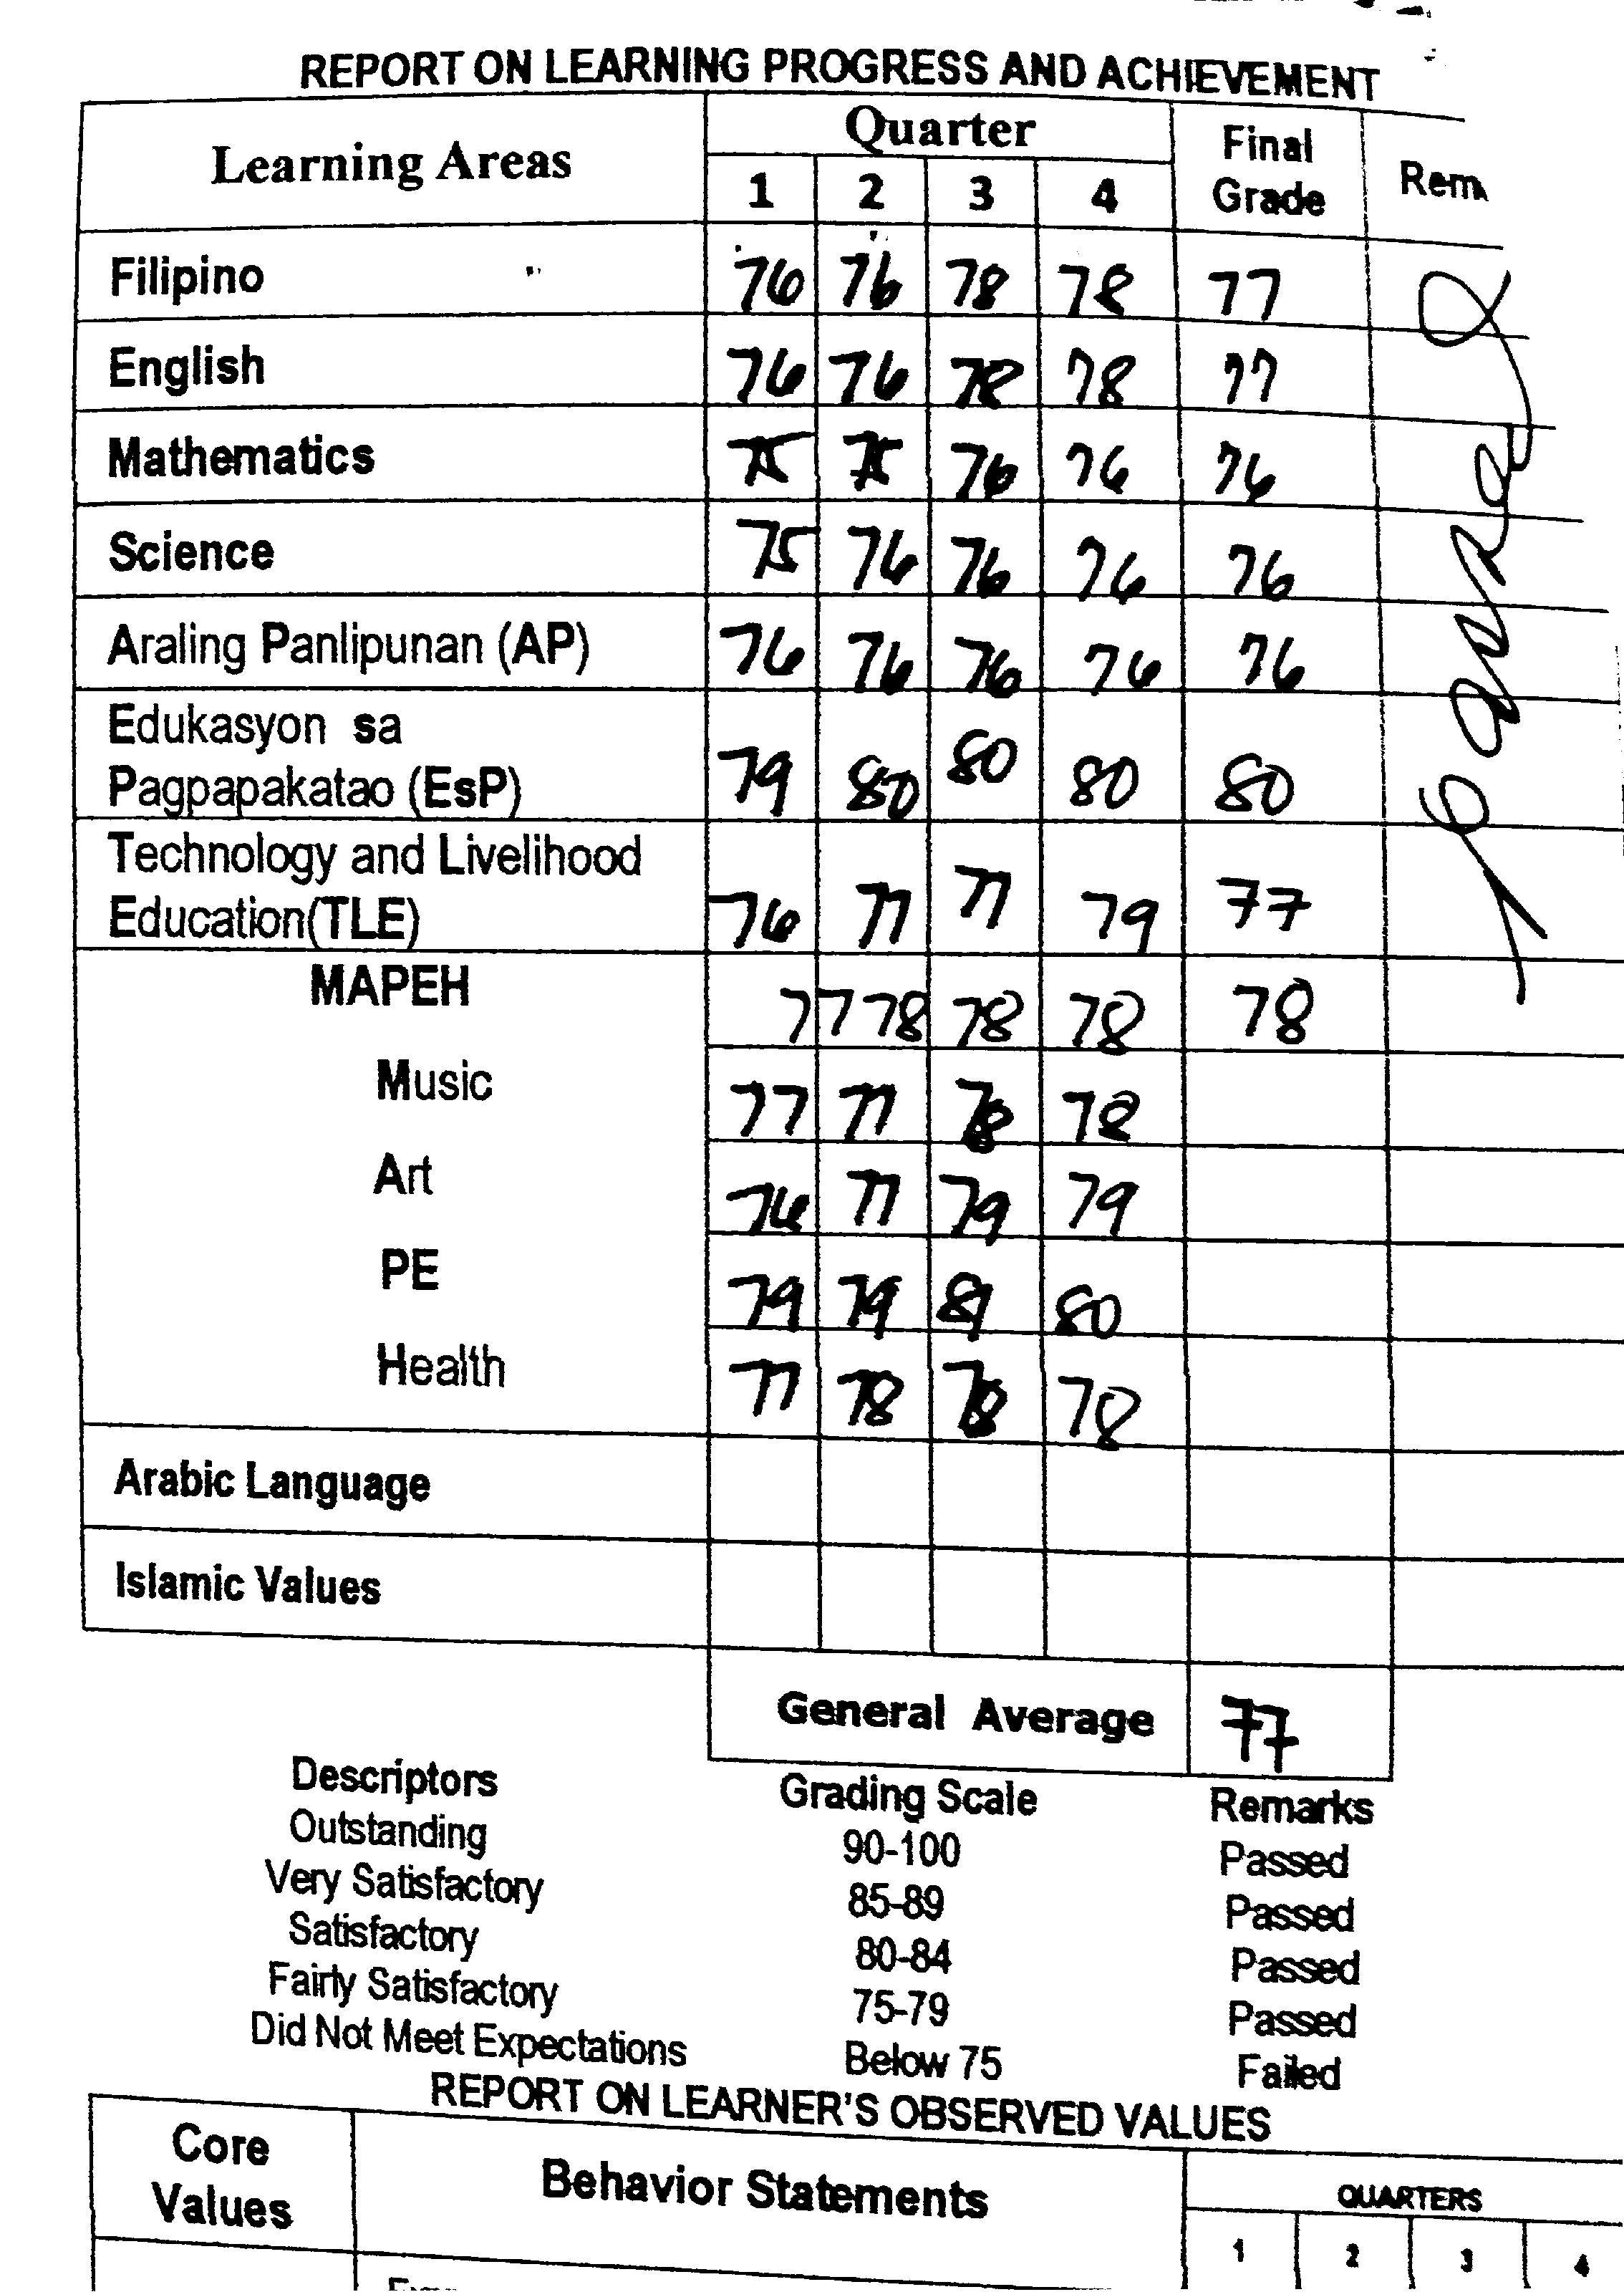 REPORT ON LEARNING PROGRESS AND ACHIEVEMENT
Learning Areas Quarter Final Grade Rem
1 2 3 4
Filipino 76 76 78 78 77
English 76 76 78 78 77
Mathematics 75 75 76 76 76
Science 75 76 76 76 76
Araling Panlipunan (AP) 76 76 76 76 76
Edukasyon sa
Pagpapakatao (EsP) 79 80 80 80 80
Technology and Livelihood
Education(TLE) 76 77 77 79 77
MAPEH 77 78 78 78 78
Music 77 77 78 78
Art 76 77 79 79
PE 79 79 80
Health 77 78 78 78
Arabic Language
Islamic Values
General Average 77
Descriptors Grading Scale Remarks
Outstanding 90-100 Passed
Very Satisfactory 85-89 Passed
Satisfactory 80-84 Passed
Fairly Satisfactory 75-79 Passed
Did Not Meet Expectations Below 75 Failed
REPORT ON LEARNER'S OBSERVED VALUES
Core Values Behavior Statements QUARTERS
1 2 3 4